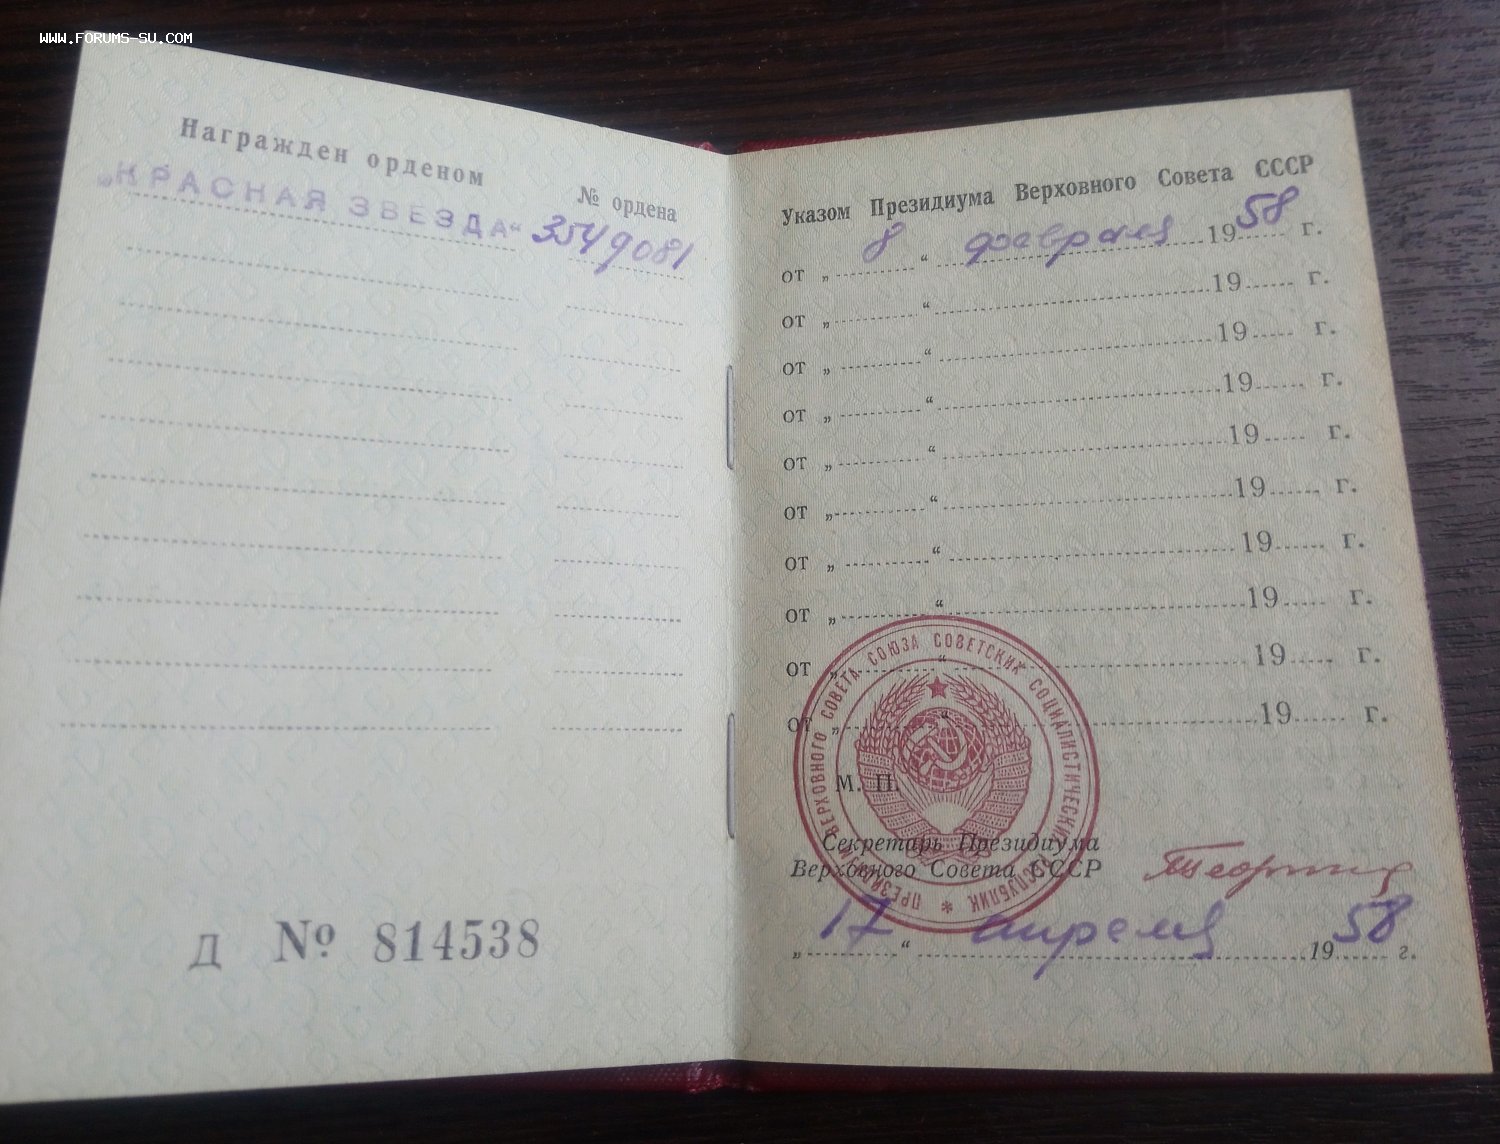 WWW.FORUMS-SU.COM
Награжден орденом
№ ордена
„КРАСНАЯ ЗВЕЗДА“ 3549081
Д № 814538
Указом Президиума Верховного Совета СССР
от „ 8 “ февраля 1958 г.
от „ “ 19 г.
от „ “ 19 г.
от „ “ 19 г.
от „ “ 19 г.
от „ “ 19 г.
от „ “ 19 г.
от „ “ 19 г.
от „ “ 19 г.
от „ “ 19 г.
ПРЕЗИДИУМ ВЕРХОВНОГО СОВЕТА СОЮЗА СОВЕТСКИХ СОЦИАЛИСТИЧЕСКИХ РЕСПУБЛИК *
М. П.
Секретарь Президиума
Верховного Совета СССР
„ 17 “ апреля 1958 г.